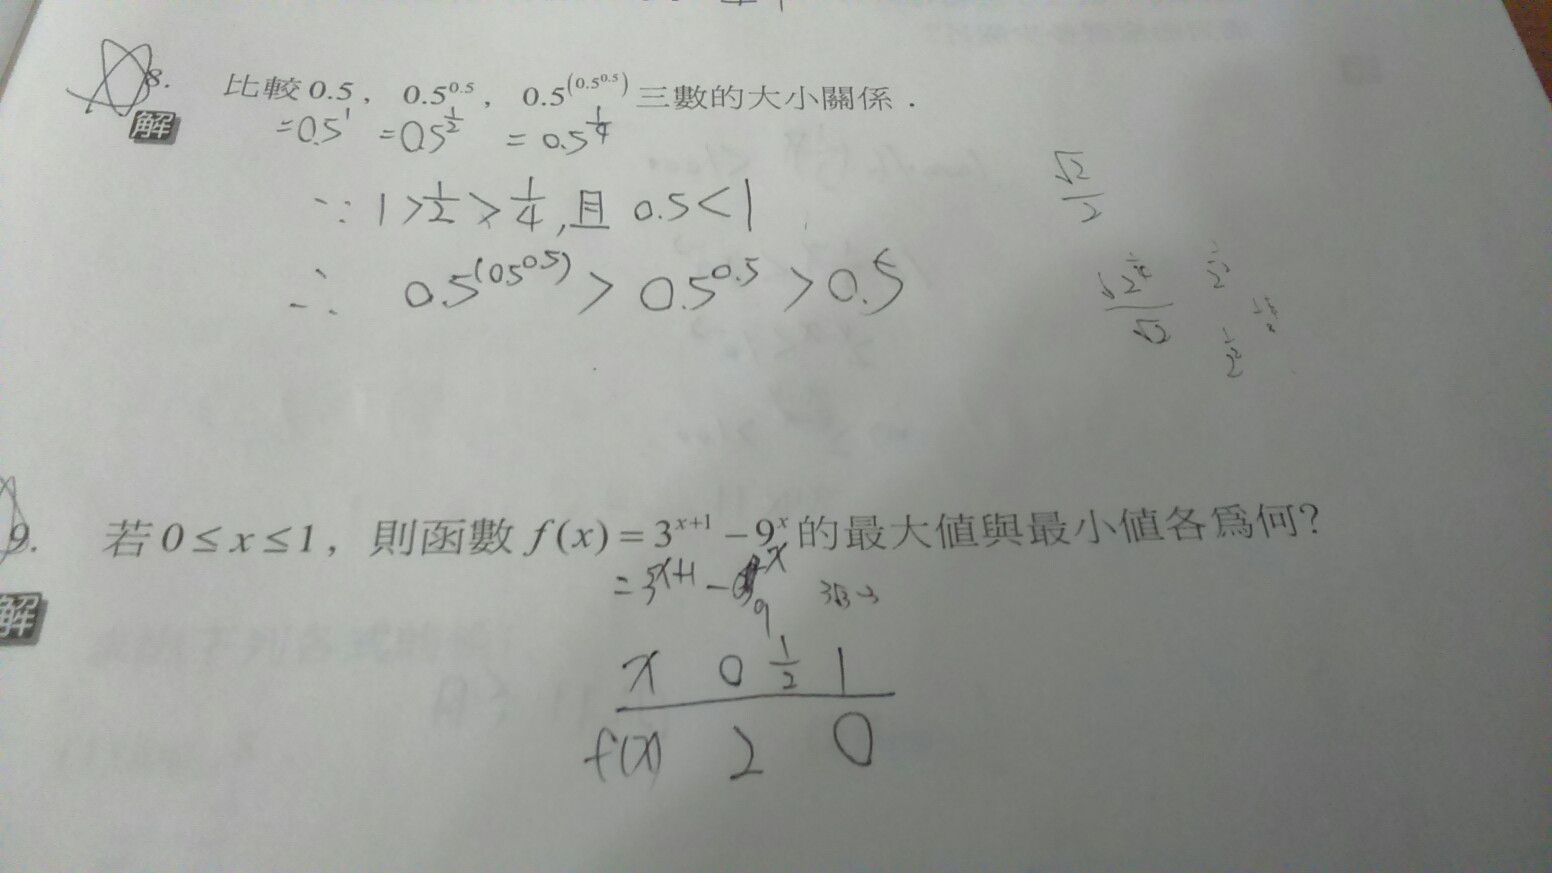 8. 比較 0.5, 0.5^0.5, 0.5^(0.5^0.5) 三數的大小關係.
解 =0.5^1 =0.5^(1/2) = 0.5^(1/4)
∵ 1 > 1/2 > 1/4, 且 0.5 < 1
√2/2
∴ 0.5^(0.5^0.5) > 0.5^0.5 > 0.5
9. 若 0 ≤ x ≤ 1, 則函數 f(x) = 3^(x+1) − 9^x 的最大值與最小值各為何?
= 3^(x+1) − 9^x
解
x 0 1/2 1
f(x) 2 0